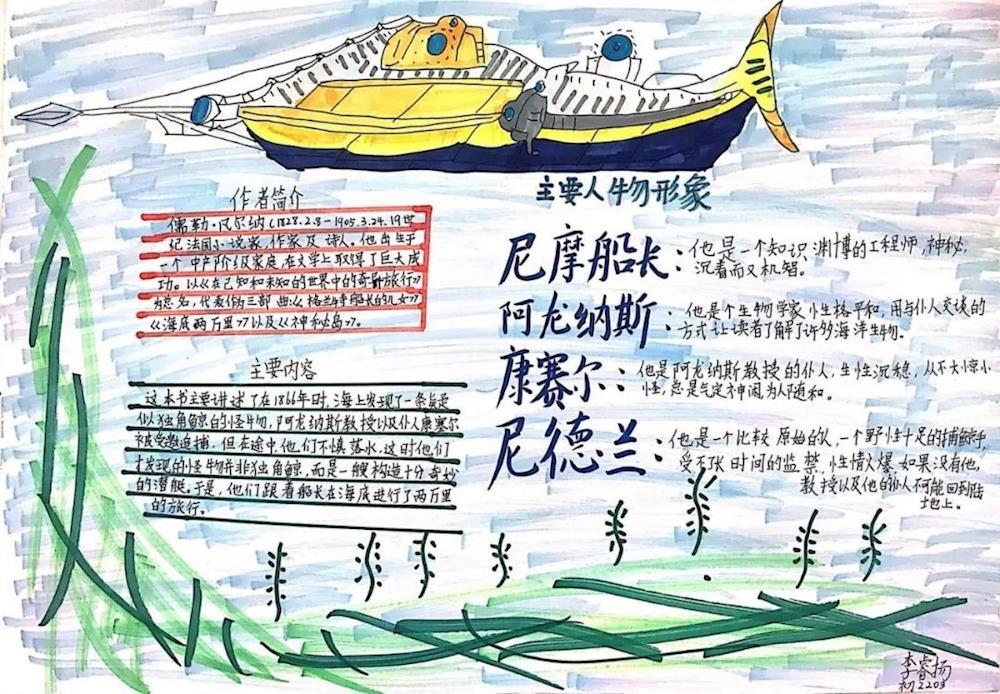 作者简介
儒勒·凡尔纳(1828.2.8-1905.3.24.19世
纪法国小说家,作家及诗人。他出生于
一个中产阶级家庭,在文学上取得了巨大成
功。以《在已知和未知的世界中的奇异旅行》
为总名,代表作为三部曲《格兰特船长的儿女》
《海底两万里》以及《神秘岛》。
主要内容
这本书主要讲述了在1866年时,海上发现了一条疑是
似独角鲸的怪物,阿龙纳斯教授以及仆人康塞尔
被受邀追捕,但在途中,他们不慎落水,这时他们
才发现的怪物并非独角鲸,而是一艘构造十分奇妙
的潜艇。于是,他们跟着船长在海底进行了两万里
的旅行。
主要人物形象
尼摩船长:他是一个知识渊博的工程师,神秘,
沉着而又机智。
阿龙纳斯:他是个生物学家,性格平和,用与仆人交谈的
方式让读者了解了许多海洋生物。
康赛尔:他是阿龙纳斯教授的仆人,生性沉稳,从不大惊小
怪,总是气定神闲,为人随和。
尼德兰:他是一个比较原始的人,一个野性十足的捕鲸手,
受不了长时间的监禁,性情火爆,如果没有他,
教授以及他的仆人不可能回到陆
地上。
李睿扬
初2203